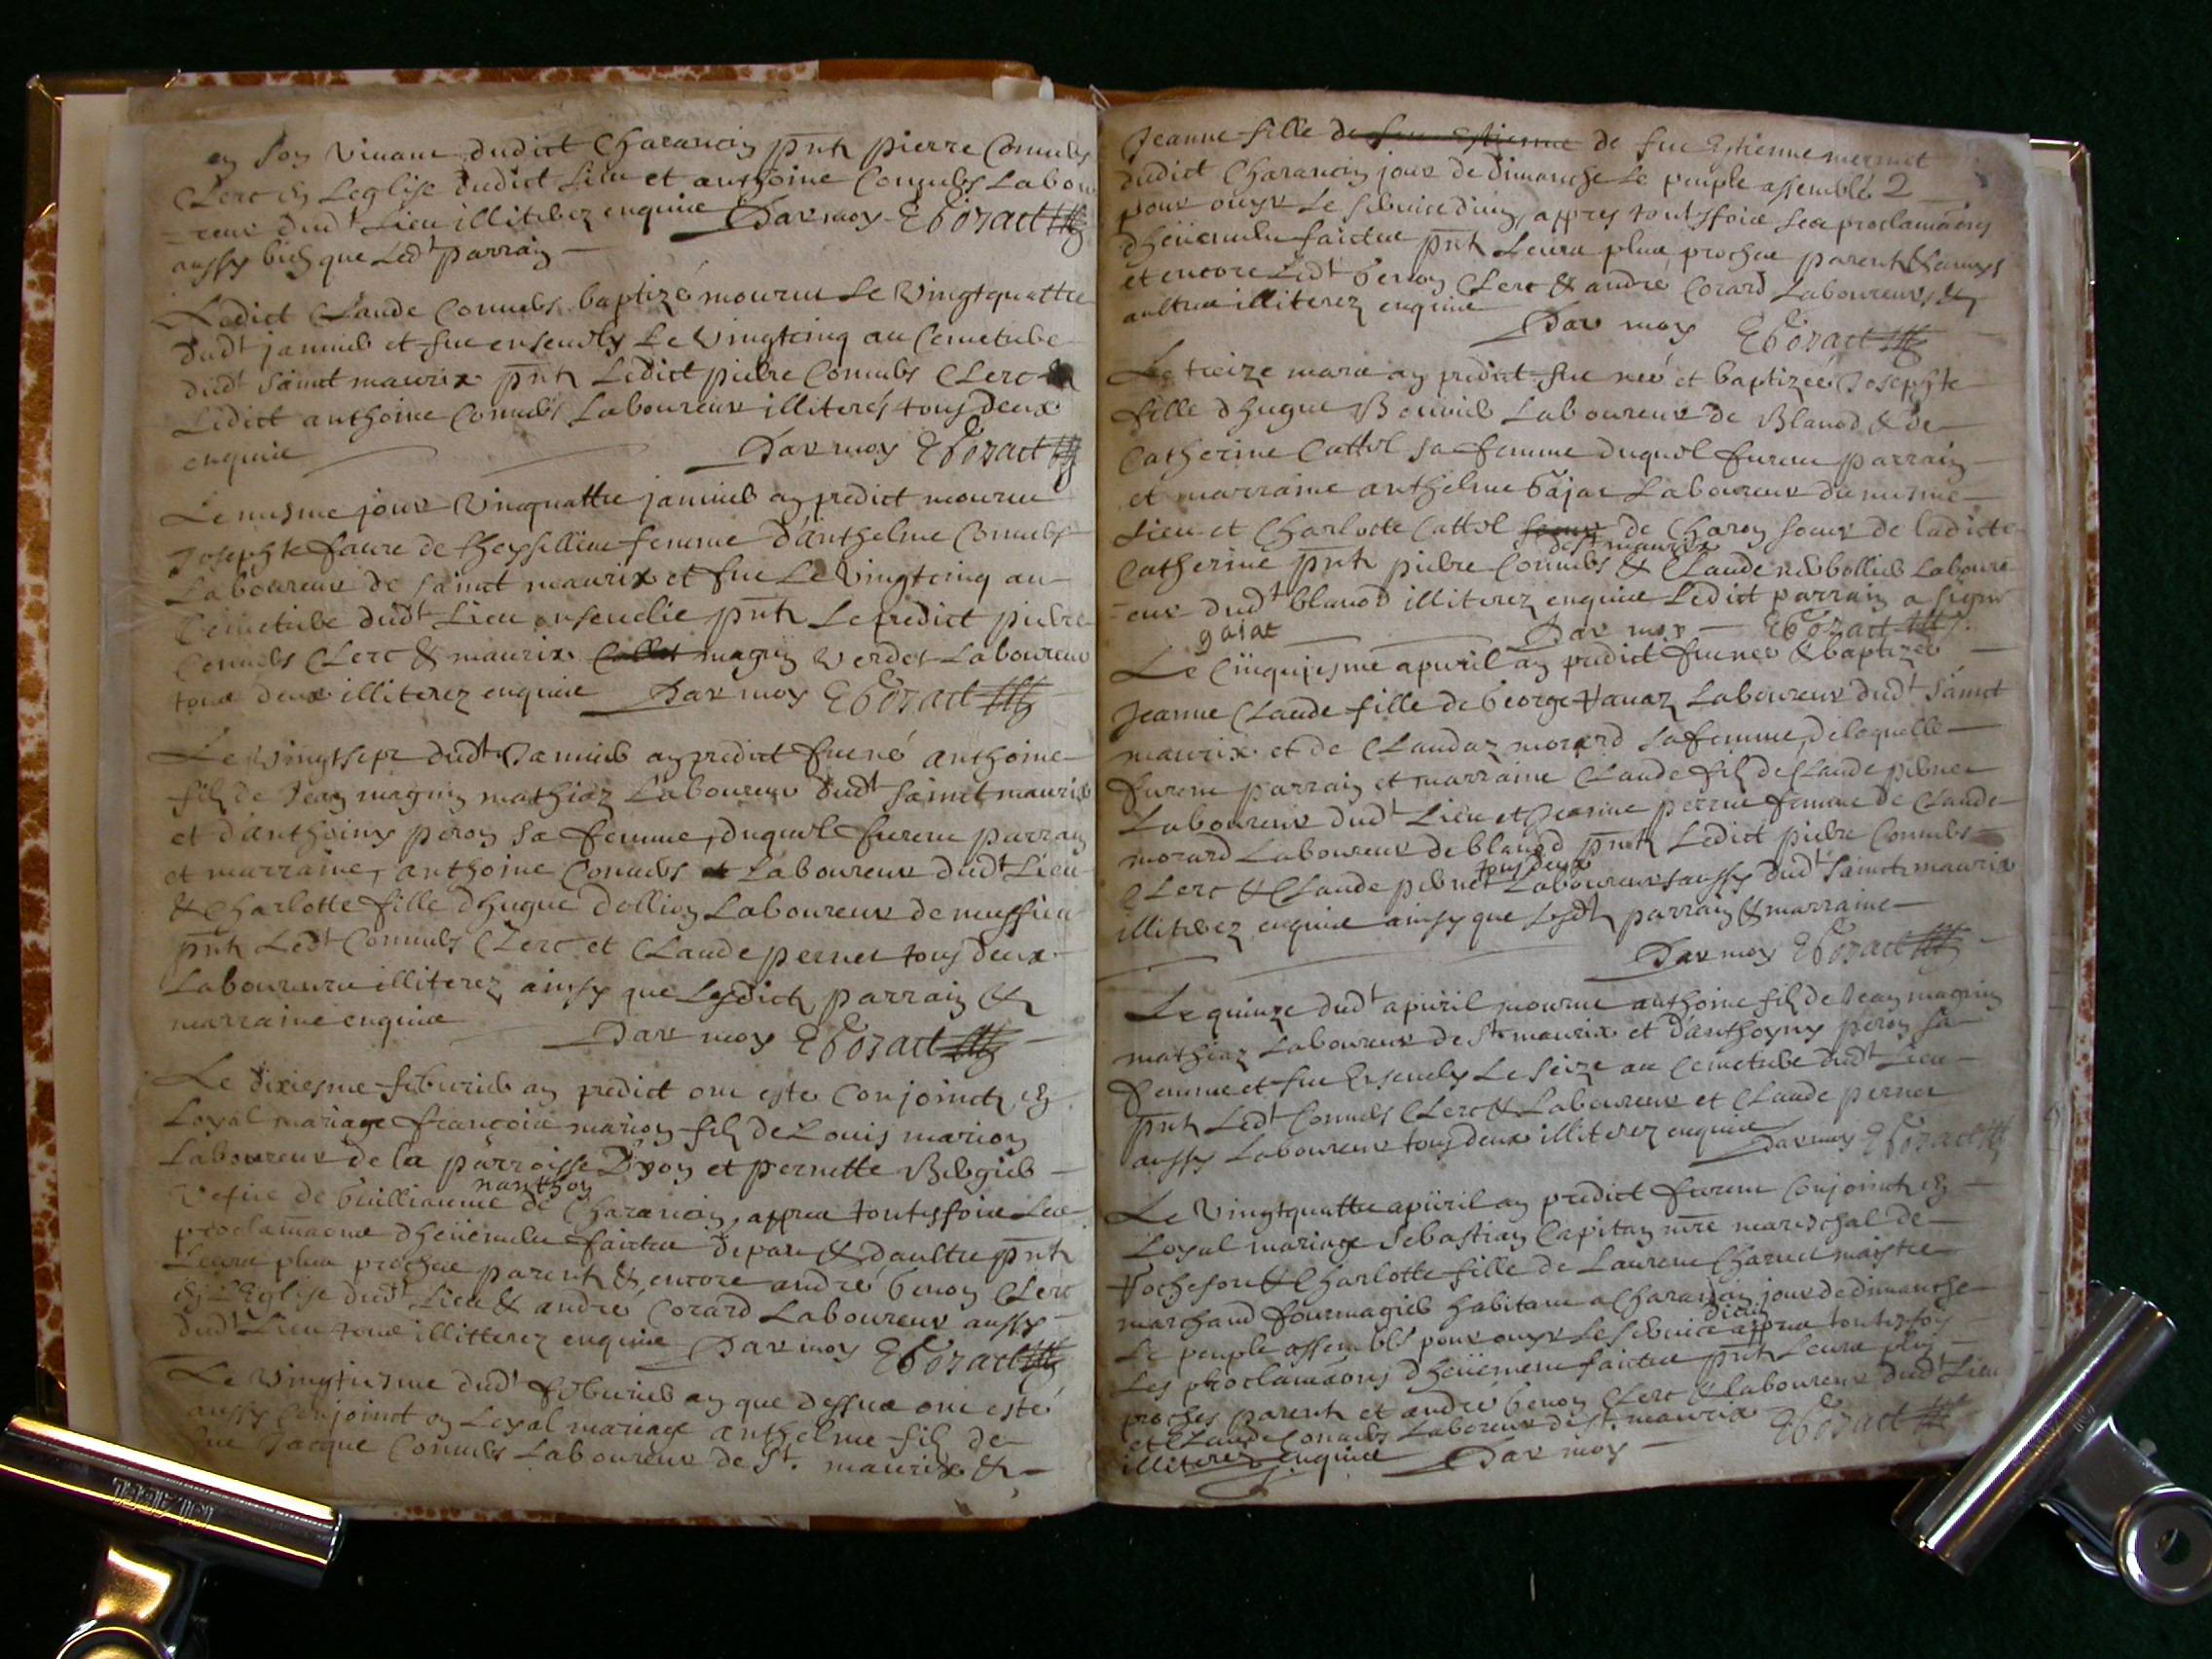 en son vivant dudict Charancin pnts pierre Connubs
Clerc en Leglise dudict Lieu et anthoine Connubs Labou
-reur dudt Lieu illiterez enquis Par moy
aussy bien que Ledt parrain
Ledict Claude Connubs baptizé mourut Le vingtquattre
dudt janvier et fut ensevely Le vingtcinq au Cemetiere
dudt sainct maurix pnts Ledict pierre Connubs Clerc
Ledict anthoine Connubs Laboureur illiterés tous deux
enquis Par moy
Le mesme jour vingquattre janvier an predict mourut
Josephte faure de femme d'anthelme Connubs
Laboureur de sainct maurix et fut Le vingtcinq au
Cemetiere dudt Lieu ensevelie pnts Le predict pierre
Connubs Clerc & maurix magnin verdet Laboureur
tous deux illiterez enquis Par moy
Le vingtsept dudt Janvier an predict fut né anthoine
filz de Jean magnin mathiaz Laboureur dudt sainct maurix
et d'anthoiny peron sa femme, duquel furent parrain
et marraine, anthoine Connubs Laboureur dudt Lieu
& Charlotte fille d'hugue dollion Laboureur de mussieu
pnts Ledt Connubs Clerc et Claude pernet tous deux
Laboureurs illiterez ainsy que Lesdicts parrain &
marraine enquis Par moy
Le dixiesme febvrier an predict ont esté Conjoincts en
Loyal mariage francois marion filz de Louis marion
Laboureur de la parroisse Dyon et pernette Bergier
vefve de Guilliaume nanthon de Charancin, appres toutesfois Les
proclamaons d'heuement faictes de part & d'aultre pnts
Leurs plus proches parents & encore andré benon Clerc
en L'Eglise dudt Lieu & andré Corard Laboureur aussy
dudt Lieu tous illitterez enquis Par moy
Le vingtiesme dudt febvrier an que dessus ont esté
aussy Conjoinct en Loyal mariage anthelme filz de
feu Jacque Connubs Laboureur de St. maurix &
Jeanne fille de feu Estienne de feu Estienne mermet
dudict Charancin jour de dimanche Le peuple assemblé 2
pour ouyr Le service divin, appres toutesfois Les proclamaons
d'heuement faictes pnts Leurs plus proches parents & amys
et encore Ledt benon Clerc & andré Corard Laboureurs &
aultres illiterez enquis
Par moy
Le treize mars an predict fut née et baptizée Josephte
fille d'hugue Bouvier Laboureur de Blanod & de
Catherine Cattel sa femme duquel furent parrain
et marraine anthelme Gajat Laboureur du mesme
Lieu et Charlotte Cattel soeur de Charon soeur de ladicte
Catherine pnts pierre Connubs de st maurix & Claude Laboure
-eur dudt blanod illiterez enquis Ledict parrain a signé
gaiat Par moy
Le Cinquiesme apvril an predict fut née & baptizée
Jeanne Claude fille de George Laboureur dudt sainct
maurix et de Claudaz morard sa femme, de laquelle
furent parrain et marraine Claude filz de Claude pernet
Laboureur dudt Lieu et Jeanne perrin femme de Claude
morard Laboureur de blanod pnts Ledict pierre Connubs
Clerc & Claude pernet tous deux Laboureurs aussy dudt sainct maurix
illiterez enquis ainsy que Lesdts parrain & marraine
Par moy
Le quinze dudt apvril mourut anthoine filz de Jean magnin
mathiaz Laboureur de St maurix et d'anthoyny peron sa
femme et fut Ensevely Le seize au Cemetiere dudt Lieu
pnts Ledt Connubs Clerc & Laboureur et Claude pernet
aussy Laboureur tous deux illiterez enquis Par moy
Le vingtquattre apvril an predict furent Conjoincts en
Loyal mariage Sebastian Capitan mre mareschal de
Rochefort & Charlotte fille de Laurent Charvet maistre
marchand fourmagier habitant a Charancin jour de dimanche
Le peuple assemblé pour ouyr Le service divin appres toutesfois
Les proclamaons d'heuement faictes pnts Leurs plus
proches parents et andré benon Clerc & laboureur dudt Lieu
et Claude Connubs Laboureur de St. maurix
illiterez enquis Par moy